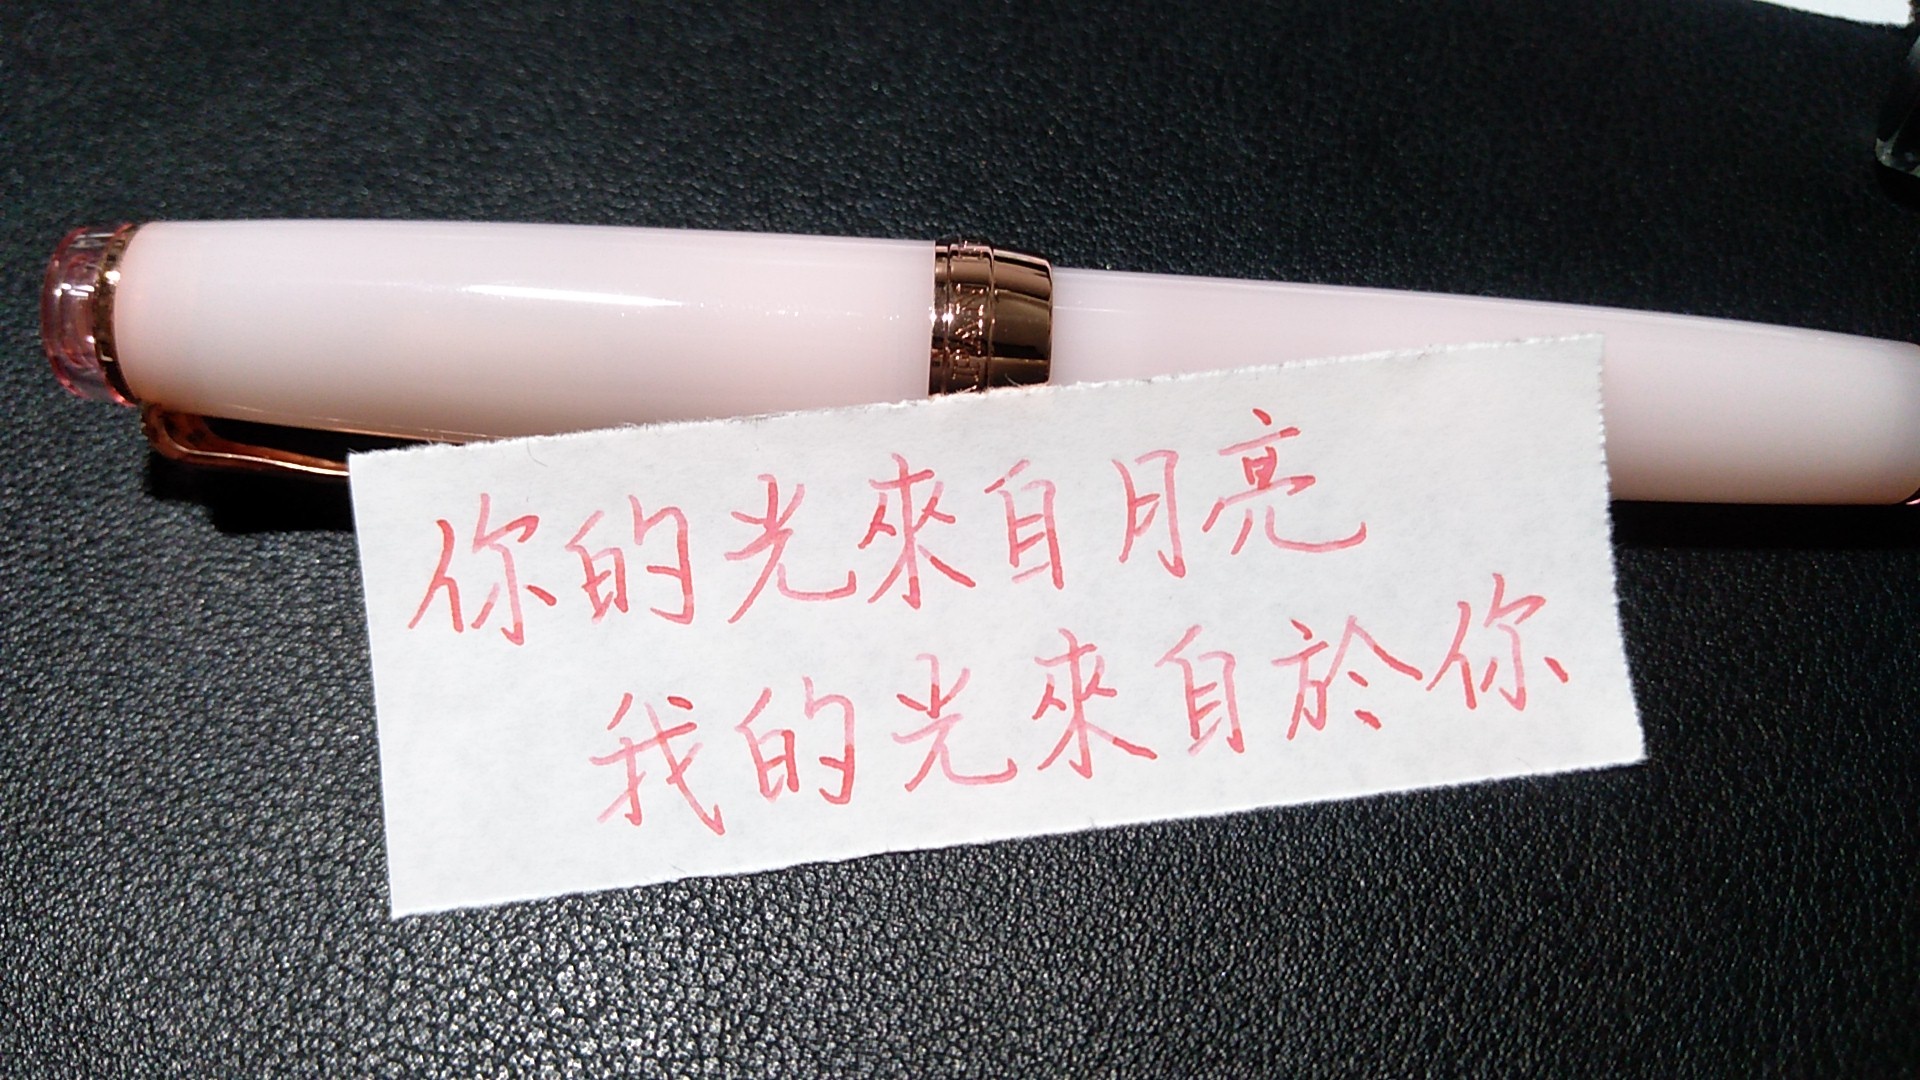 你的光來自月亮
我的光來自於你